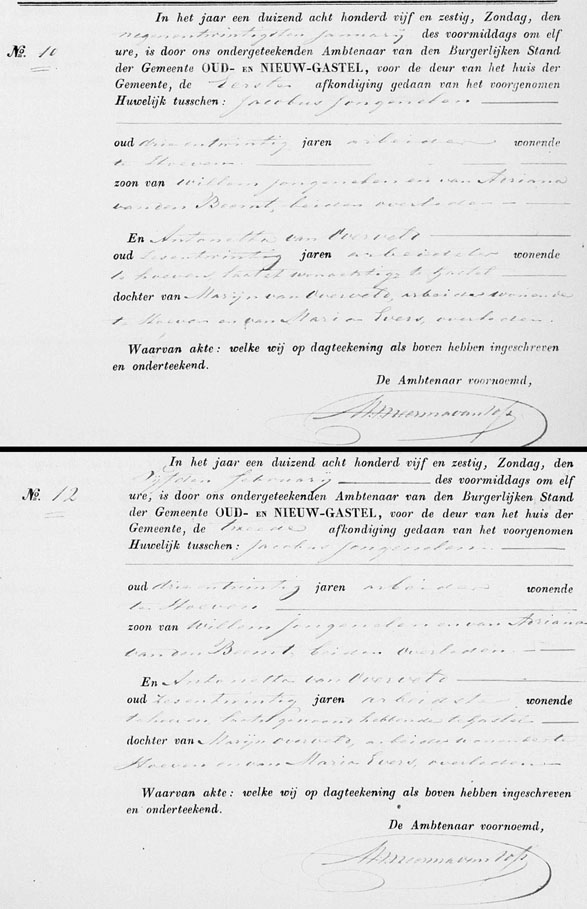 In het jaar een duizend acht honderd vijf en zestig, Zondag, den
negenentwintigsten Januarij des voormiddags om elf
No. 10 ure, is door ons ondergeteekenden Ambtenaar van den Burgerlijken Stand
der Gemeente OUD- EN NIEUW-GASTEL, voor de deur van het huis der
Gemeente, de Eerste afkondiging gedaan van het voorgenomen
Huwelijk tusschen: Jacobus Jongenelen
oud drieentwintig jaren arbeider wonende
te Hoeven
zoon van Willem Jongenelen en van Adriana
van den Beemt, beiden overleden
En Antonetta van Overvelt
oud zesentwintig jaren arbeidster wonende
te Hoeven, laatst woonachtig te Gastel
dochter van Marijn van Overvelt, arbeider wonende
te Hoeven en van Maria Evers, overleden.
Waarvan akte: welke wij op dagteekening als boven hebben ingeschreven
en onderteekend.
De Ambtenaar voornoemd,
In het jaar een duizend acht honderd vijf en zestig, Zondag, den
Vijfden februarij des voormiddags om elf
No. 12 ure, is door ons ondergeteekenden Ambtenaar van den Burgerlijken Stand
der Gemeente OUD- EN NIEUW-GASTEL, voor de deur van het huis der
Gemeente, de tweede afkondiging gedaan van het voorgenomen
Huwelijk tusschen: Jacobus Jongenelen
oud drieentwintig jaren arbeider wonende
te Hoeven
zoon van Willem Jongenelen en van Adriana
van den Beemt, beiden overleden
En Antonetta van Overvelt
oud Zesentwintig jaren arbeidster wonende
te Hoeven laatst gewoond hebbende te Gastel
dochter van Marijn Overvelt, arbeider wonende te
Hoeven en van Maria Evers, overleden
Waarvan akte: welke wij op dagteekening als boven hebben ingeschreven
en onderteekend.
De Ambtenaar voornoemd,